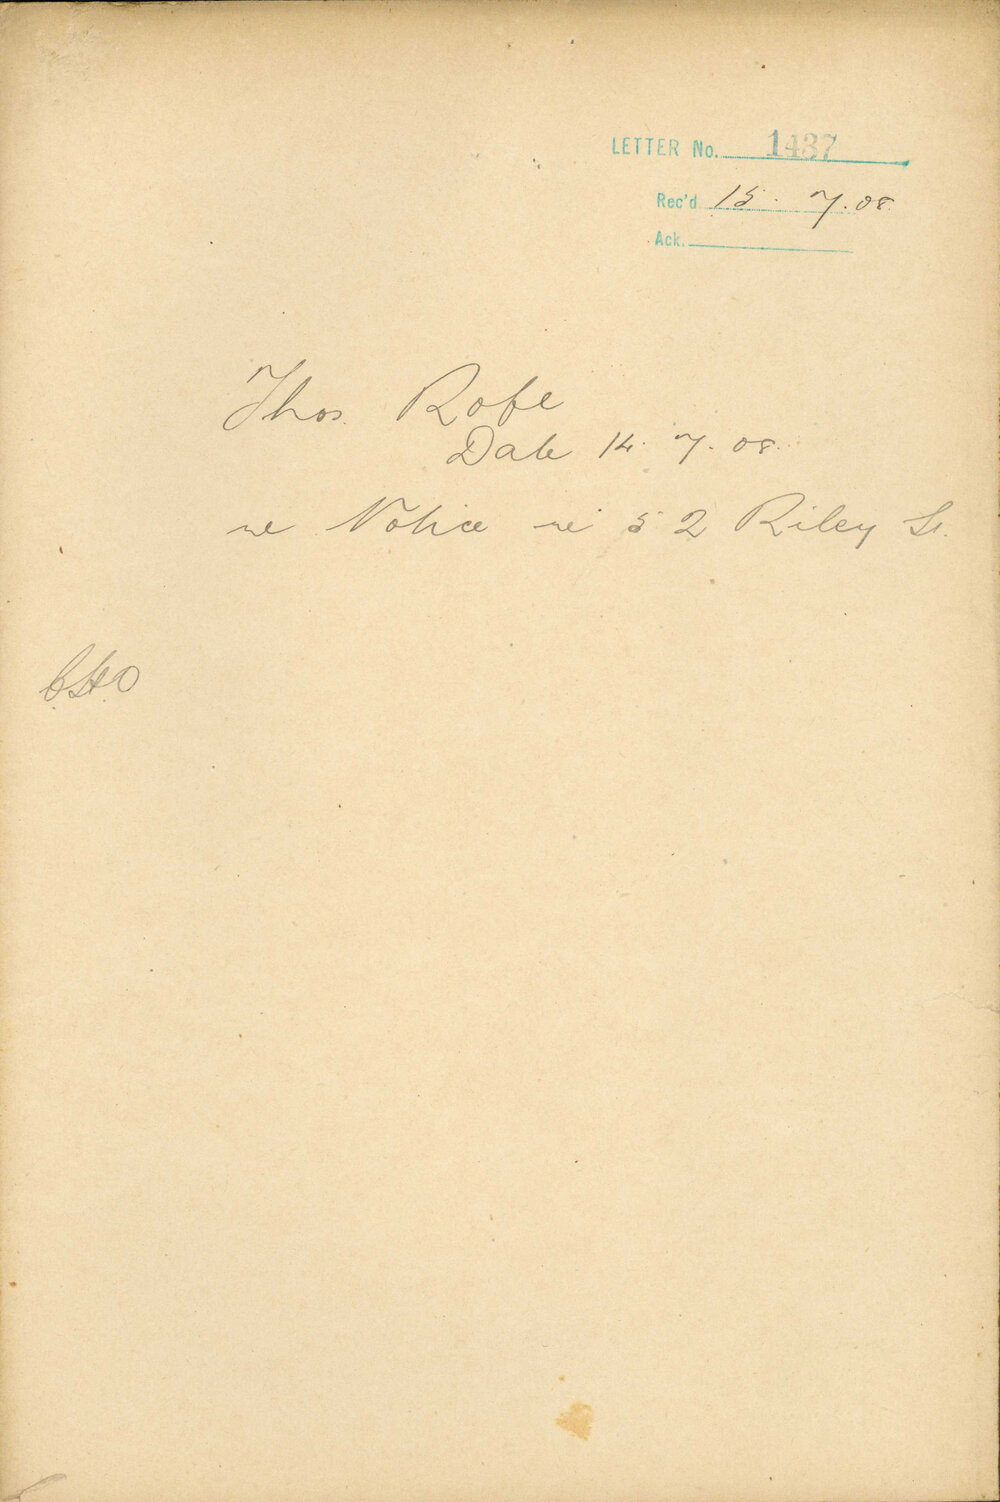 LETTER No. 1437
Rec'd 15. 7. 08
Ack.
Thos. Rofe
Date 14. 7. 08.
re Notice re 52 Riley St.
CHO